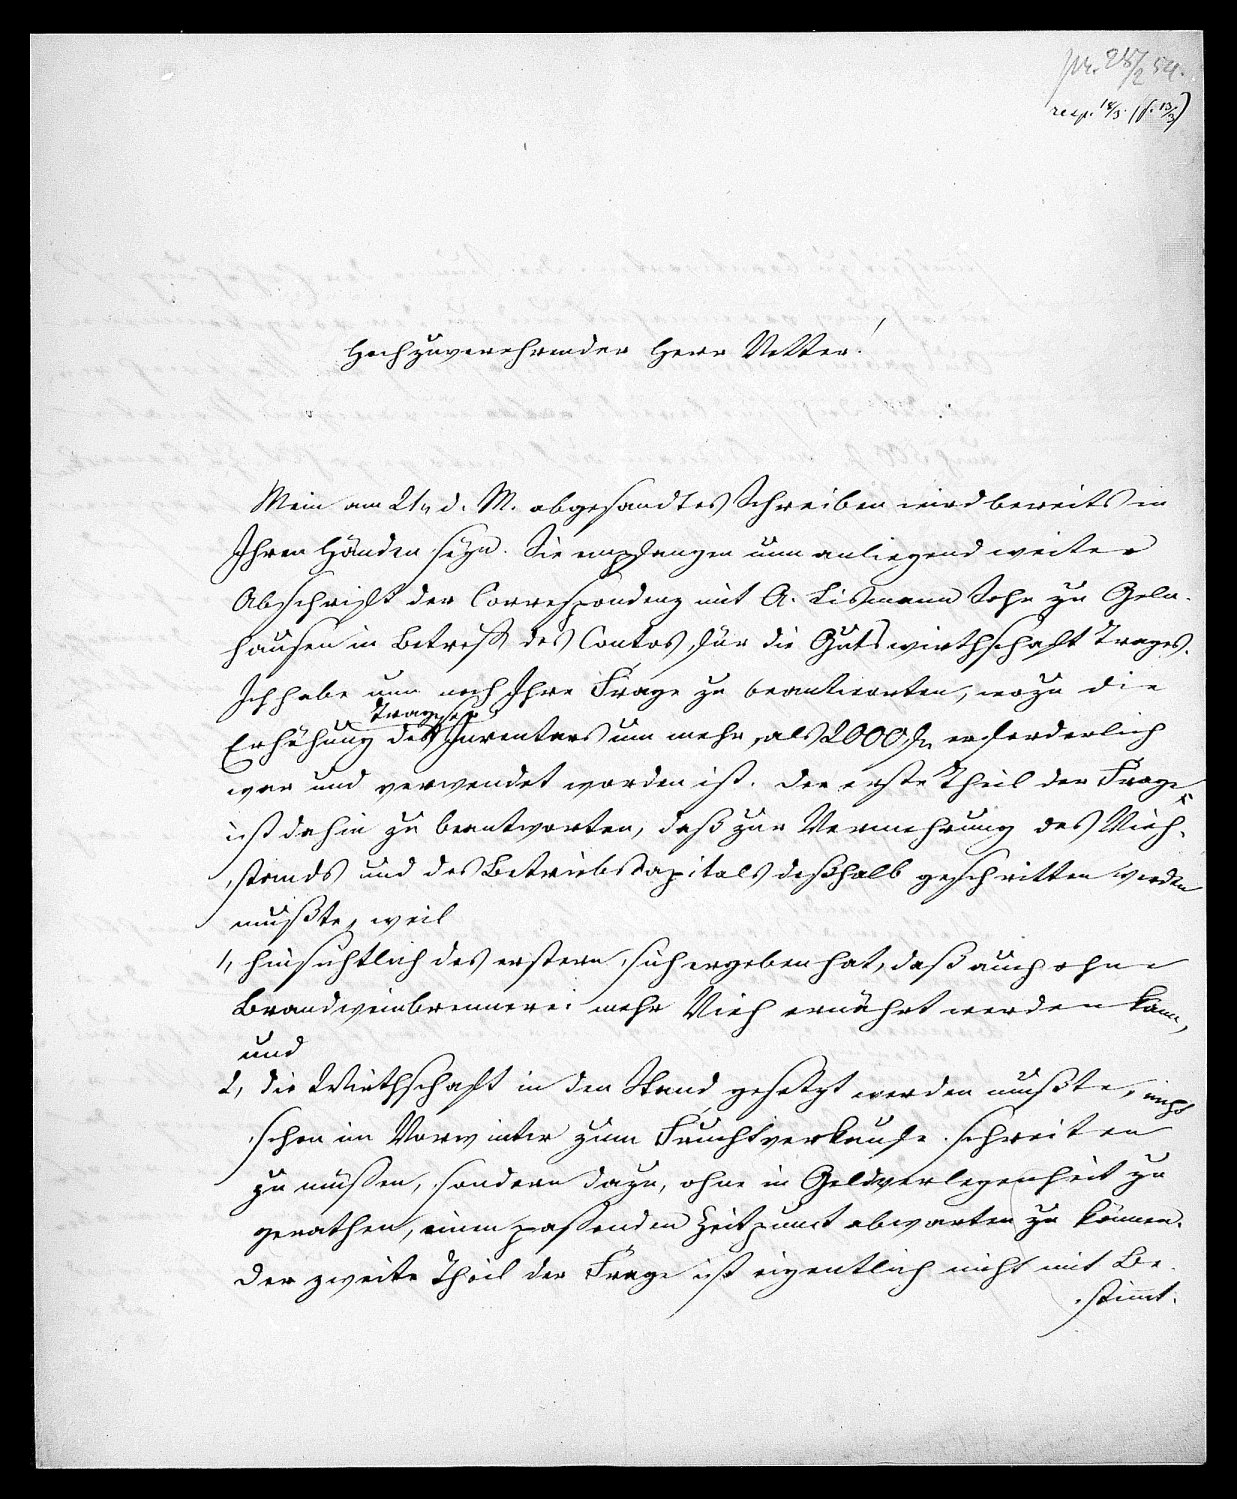 pr. 28/2 54.
resp. 18/3. (f. 13/3)
Hochzuverehrender Herr Vetter!
Mein am 21. d. M. abgesandtes Schreiben wird bereits in
Ihren Händen seyn. Sie empfangen nun anliegend weiter
Abschrift der Correspondenz mit A. Lismann Sohn zu Geln-
hausen in Betreff des Contos für die Gutswirthschaft Trages.
Ich habe nun noch Ihre Frage zu beantworten, wozu die
Trageser
Erhöhung des Inventars um mehr, als 2000 fl. erforderlich
war und verwendet worden ist. Der erste Theil der Frage
ist dahin zu beantworten, daß zur Vermehrung des Vieh-
stands und des Betriebscapitals deßhalb geschritten werden
mußte, weil
1, hinsichtlich des erstern sich ergeben hat, daß auch ohne
Brandweinbrennerei mehr Vieh ernährt werden kann,
und
2, die Wirthschaft in den Stand gesetzt werden mußte, nicht
schon im Vorwinter zum Fruchtverkaufe schreiten
zu müssen, sondern dazu, ohne in Geldverlegenheit zu
gerathen, einen passenden Zeitpunct abwarten zu können.
Der zweite Theil der Frage ist eigentlich nicht mit Be-
stimmt-